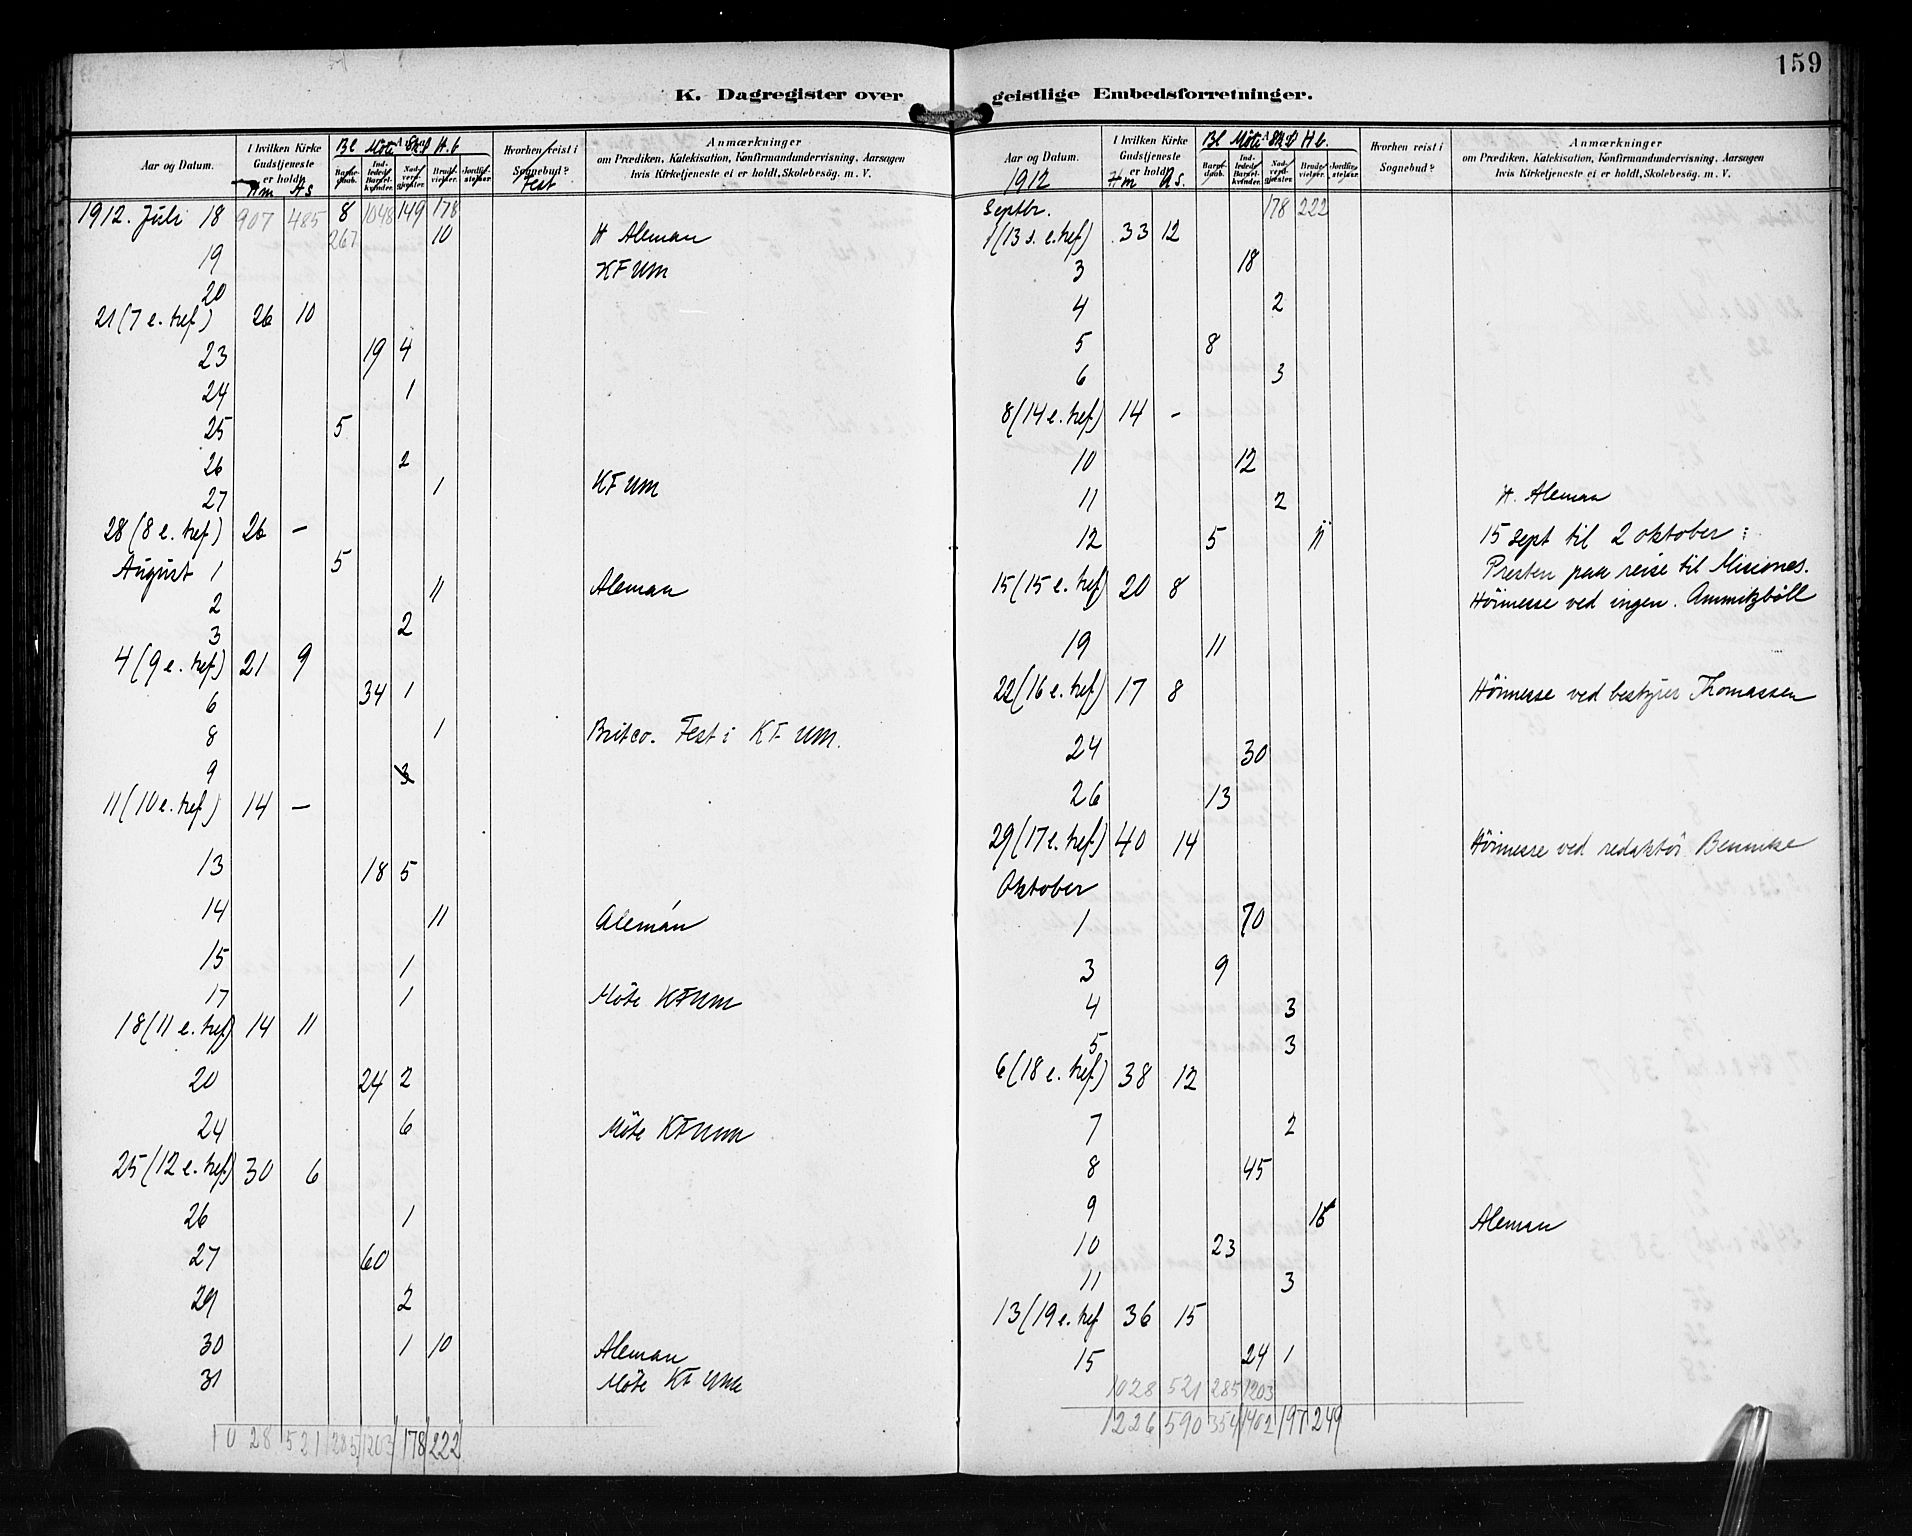 159
K. Dagregister over geistlige Embedsforretninger.
Aar og Datum.
I hvilken Kirke Gudstjeneste er holdt.
Hm As
Bl Möte Skol H.b
Barne-daab.
Ind-ledede Barsel-kvinder.
Nad-verd-gjester.
Brude-vielser.
Jordfæ-stelser.
Hvorhen reist i Sognebud?
Fest
Anmærkninger
om Prædiken, Katekisation, Konfirmandundervisning. Aarsagen
hvis Kirketjeneste ei er holdt, Skolebesøg. m. V.
1912. Juli 18 907 485 8 1048 149 178
267 10 H Aleman
19 KFUM
20
21 (7 e. tref.) 26 10
23 19 4
24 1
25 5
26 2
27 1 KFUM
28 (8 e. tref.) 26 –
August 1 5
2 11 Aleman
3 2
4 (9 e. tref.) 21 9
6 34 1
8 1 Britco. Fest i KFUM.
9 3
11 (10 e. tref.) 14 –
13 18 5
14 11 Alemán
15 1
17 1 Möte KFUM
18 (11 e. tref.) 14 11
20 24 2
24 6 Möte KFUM
25 (12 e. tref.) 30 6
26 1
27 60
29 2
30 1 10 Aleman
31 Möte KFUM
1028 521 285 1203 178 222
Aar og Datum.
1912
I hvilken Kirke Gudstjeneste er holdt
Hm As.
Bl Möte Skol H b.
Barne-daab.
Ind-ledede Barsel-kvinder.
Nad-verd-gjester.
Brude-vielser.
Jordfæ-stelser.
Hvorhen reist i Sognebud?
Anmærkninger
om Prædiken, Katekisation, Konfirmandundervisning, Aarsagen
hvis Kirketjeneste ei er holdt, Skolebesøg. m. V.
Septbr. 178 222
1 (13 s. e. tref) 33 12
3 18
4 2
5 8
6 3
8 (14 e. tref) 14 –
10 12
11 2 H. Aleman
12 5 11 15 sept til 2 oktober :
Presten paa reise til Misiones.
15 (15 e. tref) 20 8 Höimesse ved ingen. Ammitzböll
19 11
22 (16 e. tref) 17 8 Höimesse ved bestyrer Thomassen
24 30
26 13
29 (17 e. tref.) 40 14 Höimesse ved redaktör Bennike
Oktober
1 70
3 9
4 3
5 3
6 (18 e. tref.) 38 12
7 2
8 45
9 16 Aleman
10 23
11 3
13 (19 e. tref 36 15
15 24 1
1028 521 285 1203
1226 590 354 1402 197 249